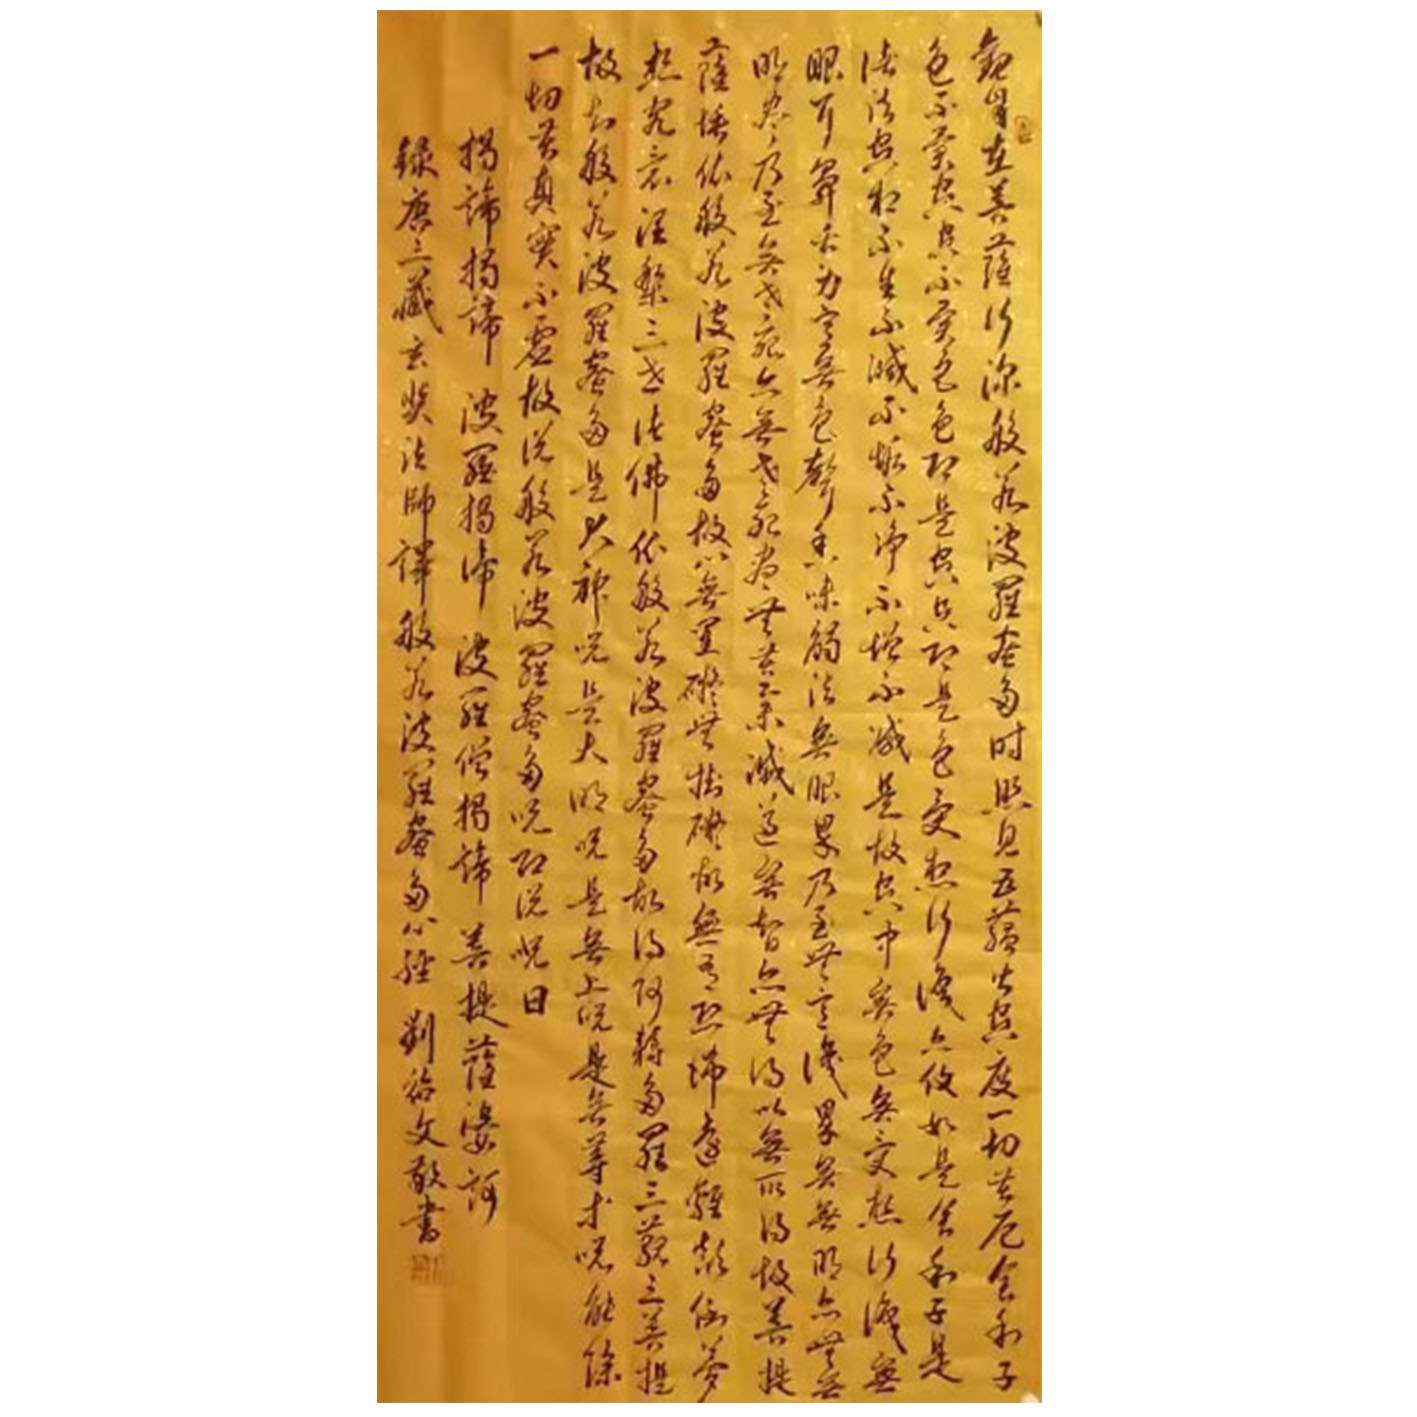 觀自在菩薩行深般若波羅蜜多時照見五蘊皆空度一切苦厄舍利子
色不異空空不異色色即是空空即是色受想行識亦復如是舍利子是
諸法空相不生不滅不垢不淨不增不減是故空中無色無受想行識無
眼耳鼻舌身意無色聲香味觸法無眼界乃至無意識界無無明亦無無
明盡乃至無老死亦無老死盡無苦集滅道無智亦無得以無所得故菩提
薩埵依般若波羅蜜多故心無罣礙無掛礙故無有恐怖遠離顛倒夢
想究竟涅槃三世諸佛依般若波羅蜜多故得阿耨多羅三藐三菩提
故知般若波羅蜜多是大神咒是大明咒是無上咒是無等等咒能除
一切苦真實不虛故說般若波羅蜜多咒即說咒曰
揭諦揭諦 波羅揭諦 波羅僧揭諦 菩提薩婆訶
錄唐三藏玄奘法師譯般若波羅蜜多心經 劉裕文敬書